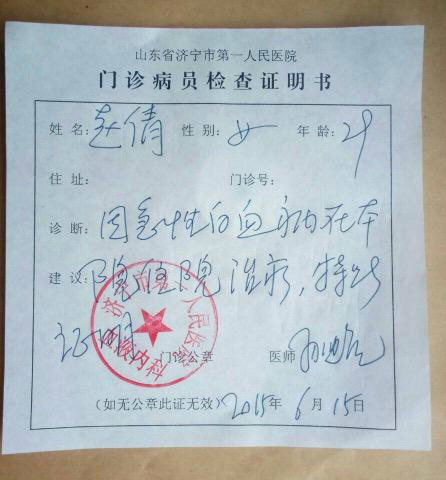 山东省济宁市第一人民医院
门诊病员检查证明书
姓名: 赵倩 性别: 女 年龄: 21
住址: 门诊号:
诊断: 因急性白血病在本
建议: 院住院治疗,特此
证明
济宁市第一人民医院
血液内科
门诊公章 医师
(如无公章此证无效) 2015年6月15日